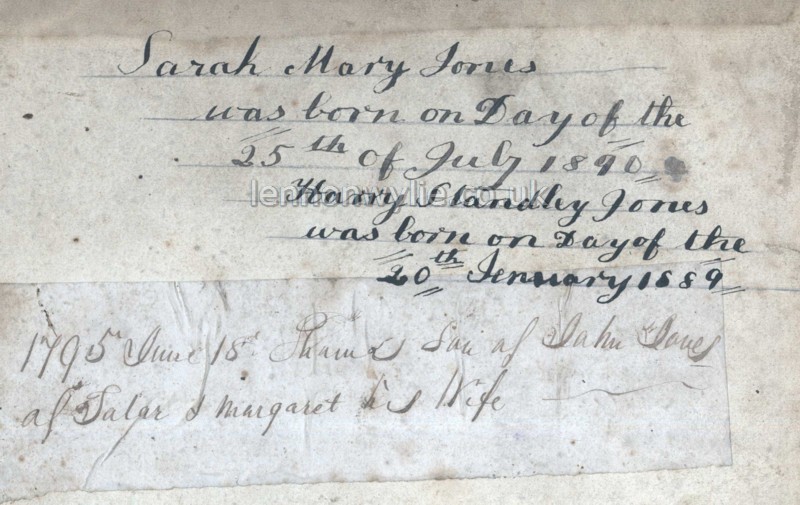 Sarah Mary Jones
was born on Day of the
25th of July 1890
lennonwylie.co.uk
Harry Standley Jones
was born on Day of the
20th Jenuary 1889
1795 June 18th Thomas Son of John Jones
of Salar & Margaret his Wife